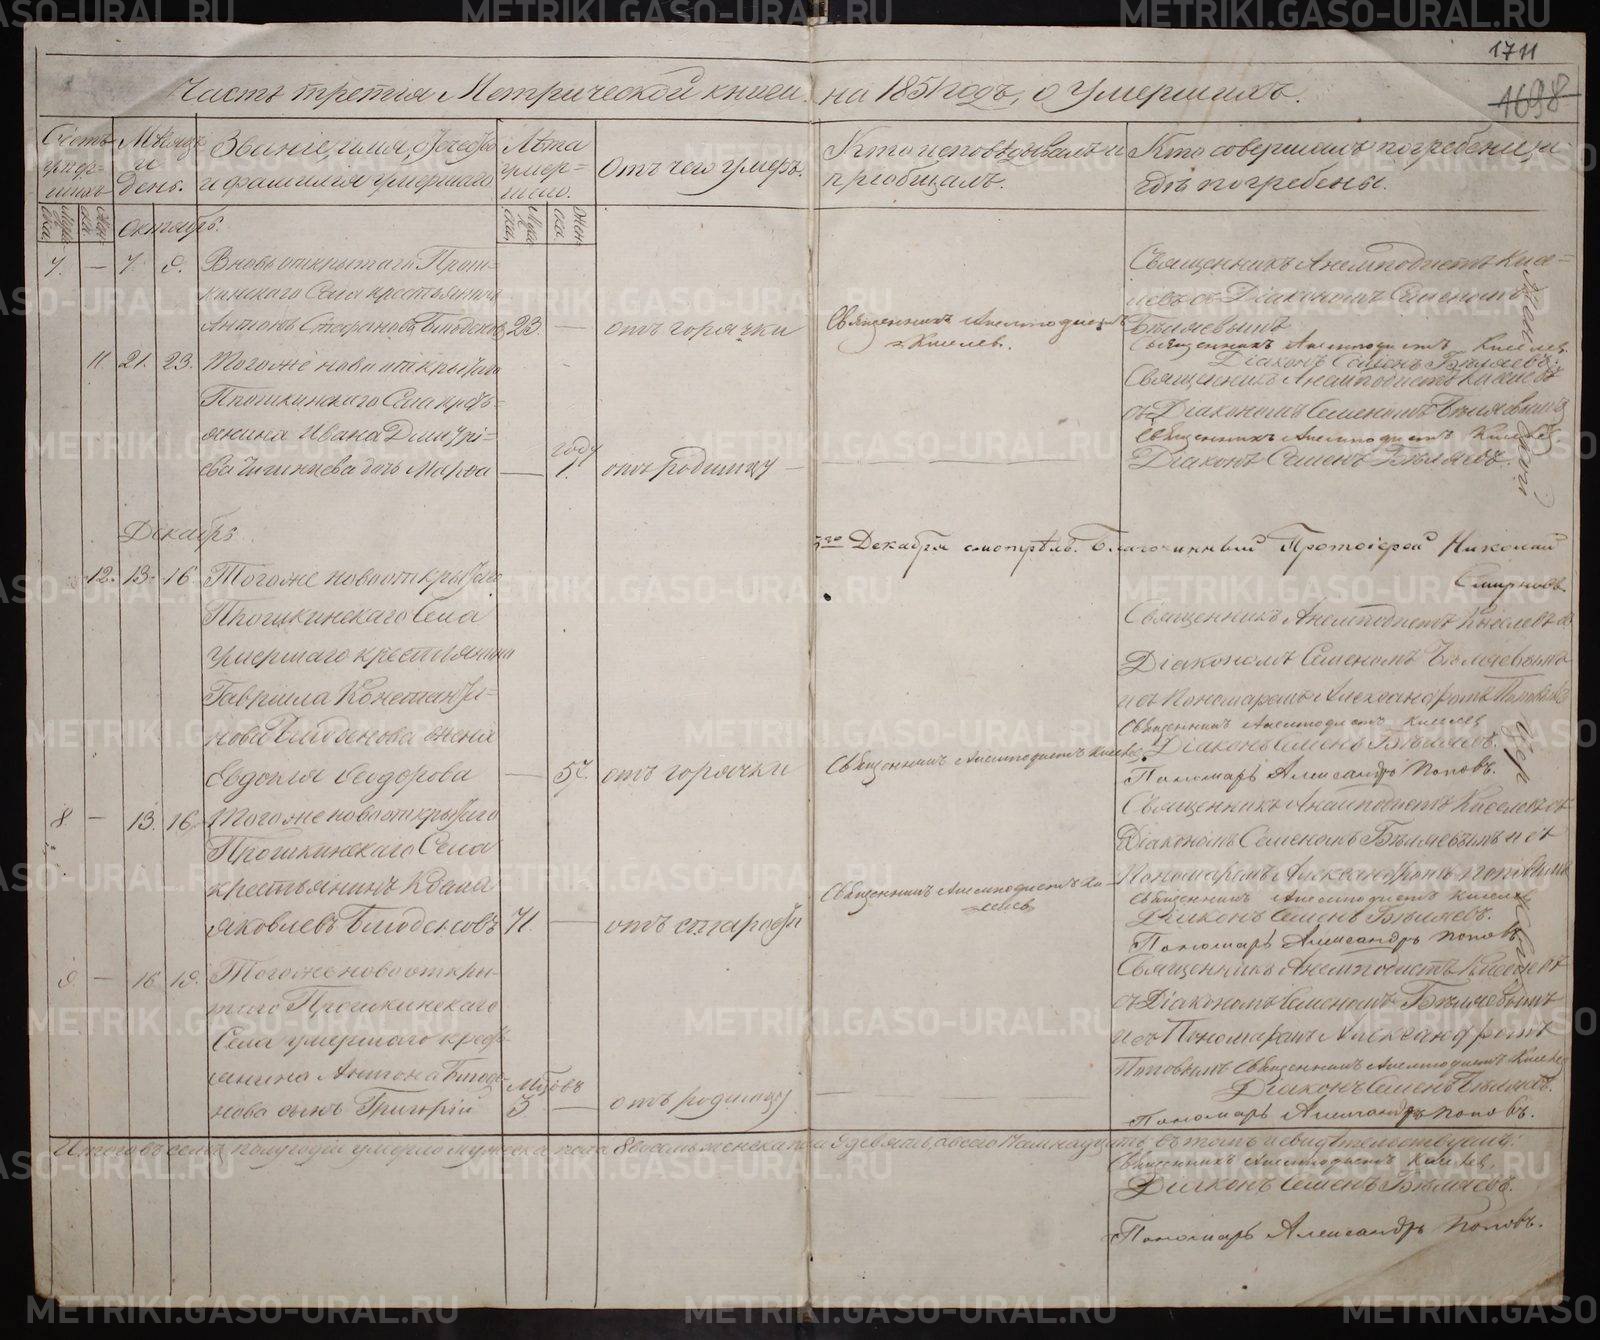 1711
1698
Часть третія Метрической книги на 1851 годъ, о умершихъ.
Счетъ умершихъ
Мужеска
Женска
Мѣсяцъ и день.
Званіе, имя, отчество и фамилія умершаго
Лѣта умершаго.
Мужеска
Женска
Отъ чего умеръ.
Кто исповѣдывалъ и пріобщалъ.
Кто совершалъ погребеніе, и гдѣ погребены.
Октябрь.
7. — 7. 9. Вновь открытаго Прош-
кинскаго Села крестьянинъ
Антонъ 23. — отъ горячки
Священникъ Анемподистъ
Киселев.
Священникъ Анемподистъ Кисе-
левъ съ Діакономъ Семеномъ
Бѣляевымъ
Священникъ Анемподистъ Киселев
Діаконъ Семенъ Бѣляевъ.
11. 21. 23. Тогоже новооткрытаго
Прошкинскаго Села кресть-
янина Ивана Дмитрі-
ева дочь Марѳа — году 1. отъ родимцу —
Священникъ Анемподистъ Киселевъ
съ Діакономъ Семеномъ Бѣляевымъ
Священникъ Анемподистъ Киселев
Діаконъ Семенъ Бѣляевъ.
Декабрь.
3го Декабря смотрѣлъ Благочинный Протоіерей Николай
Смирновъ
12. 13. 16. Тогоже новооткрытаго
Прошкинскаго Села
умершаго крестьянина
Гавріила Константи-
нова жена
Евдокія Ѳеодорова — 57. отъ горячки
Священникъ Анемподистъ Киселев
Священникъ Анемподистъ Киселевъ съ
Діакономъ Семеномъ Бѣляевымъ
и съ Пономаремъ Александромъ Поповымъ
Священникъ Анемподистъ Киселев
Діаконъ Семенъ Бѣляевъ.
Пономарь Александръ Поповъ.
8. — 13. 16. Тогоже новооткрытаго
Прошкинскаго Села
крестьянинъ
Яковлевъ 71. — отъ старости
Священникъ Анемподистъ Ки-
селев
Священникъ Анемподистъ Киселевъ съ
Діакономъ Семеномъ Бѣляевымъ и съ
Пономаремъ Александромъ Поповымъ
Священникъ Анемподистъ Киселев
Діаконъ Семенъ Бѣляевъ.
Пономарь Александръ Поповъ
9. — 16. 19. Тогоже новооткры-
таго Прошкинскаго
Села умершаго кресть-
янина Антона
нова сынъ Григорій Мцовъ 3 — отъ родимцу
Священникъ Анемподистъ Киселевъ
съ Діакономъ Семеномъ Бѣляевымъ
и съ Пономаремъ Александромъ
Поповымъ Священникъ Анемподистъ Киселев
Діаконъ Семенъ Бѣляевъ.
Пономарь Александръ Поповъ.
Итого въ семъ полугодіи умерло мужеска пола 8 восемь женска пола 9 девять, а всего 17 семнадцать, въ томъ и свидѣтельствуемъ:
Священникъ Анемподистъ Киселев,
Діаконъ Семенъ Бѣляевъ.
Пономарь Александръ Поповъ.
METRIKI.GASO-URAL.RU